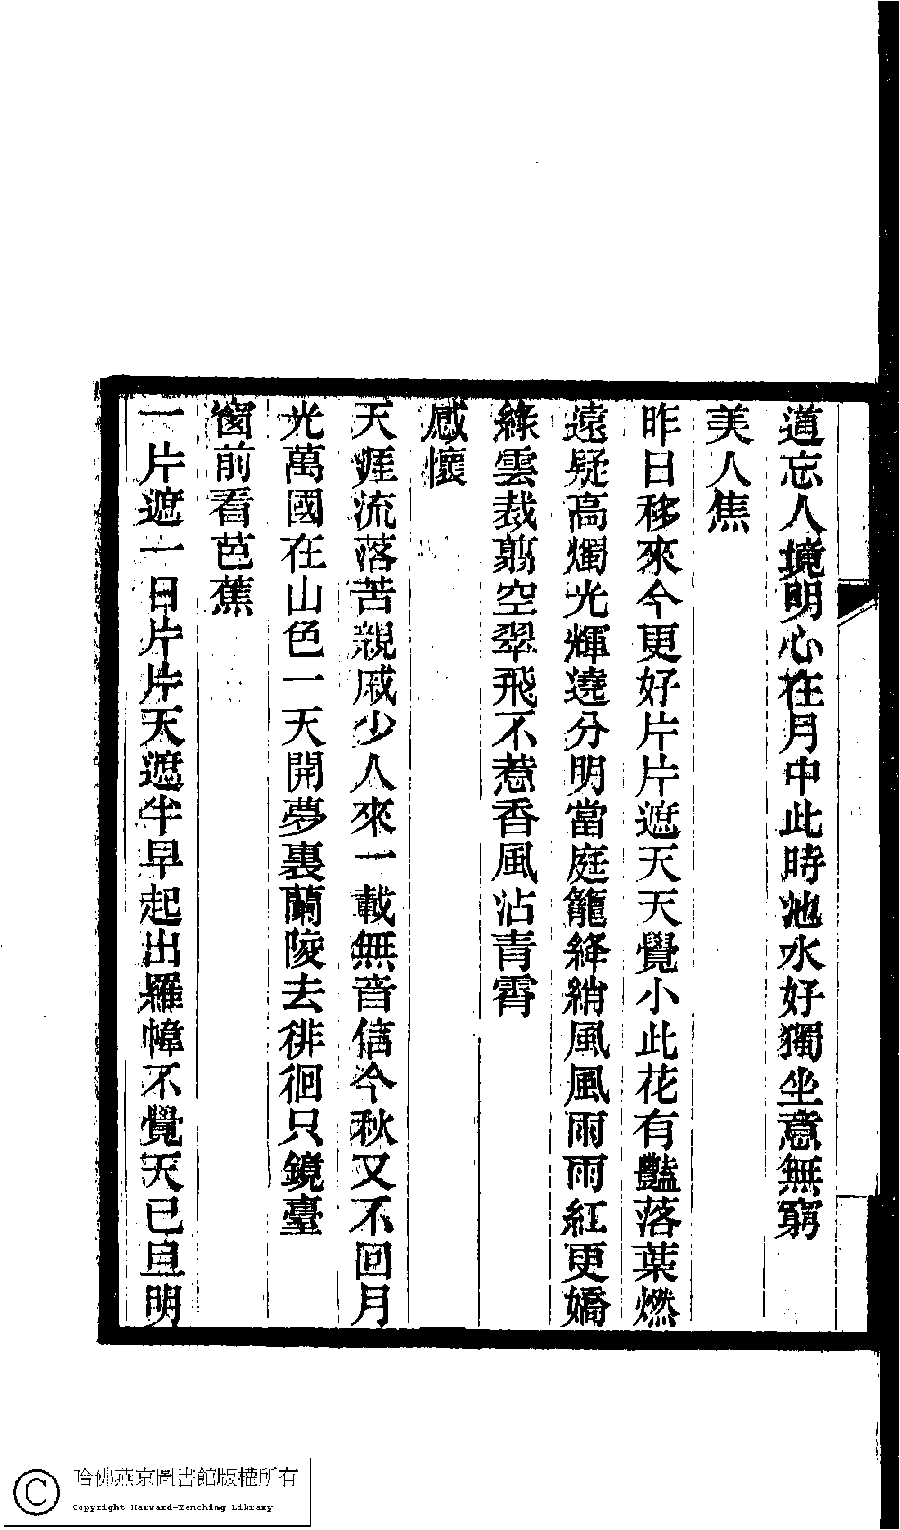 道忘人境明心在月中此時池水好獨坐意無窮
美人焦
昨日移來今更好片片遮天天覺小此花有豔落葉燃
遠疑高燭光輝遶分明當庭籠絳綃風風雨雨紅更嬌
綠雲裁翦空翠飛不惹香風沾青霄
感懷
天涯流落苦親戚少人來一載無音信今秋又不回月
光萬國在山色一天開夢裏蘭陵去徘徊只鏡臺
窗前看芭蕉
一片遮一日片片天遮半早起出羅幃不覺天已旦明
哈佛燕京圖書館版權所有
Copyright Harvard-Yenching Library